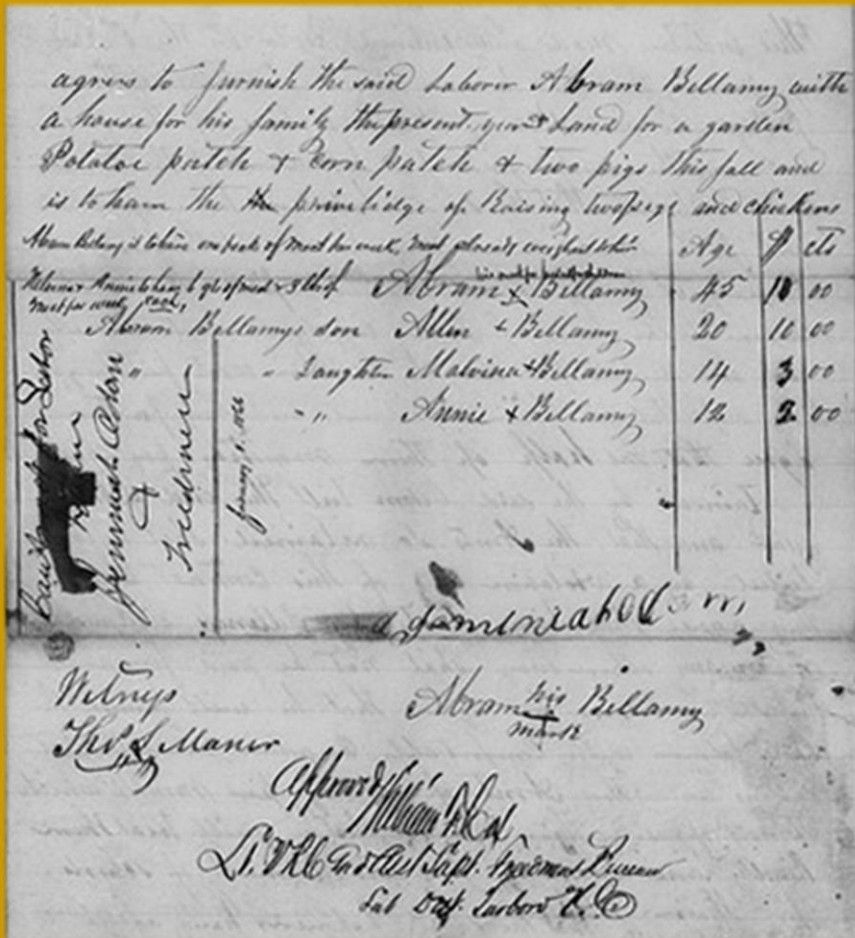 agrees to furnish the said Laborer Abram Bellamy with
a house for his family the present year & Land for a garden
Potatoe patch & Corn patch & two pigs this fall and
is to have the the priveledge of Raising two pigs and chickens
Abram Bellamy is to have one peck of meal per week, meat already
Age $ cts
Abram x Bellamy 45 10 00
meat per week each,
Abram Bellamys son Allen x Bellamy 20 10 00
" " Daughter Malvina x Bellamy 14 3 00
" " Annie x Bellamy 12 2 00
Contract for Labor
Between
Jeremiah
&
Freedmen
January 1. 1866
Witness
Abram his Bellamy
mark
Thos S Maner
Approved
William F. Cox
Lt. V.R.C. and Asst Supt. Freedmens Bureau
Sub Dist. Tarboro N.C.